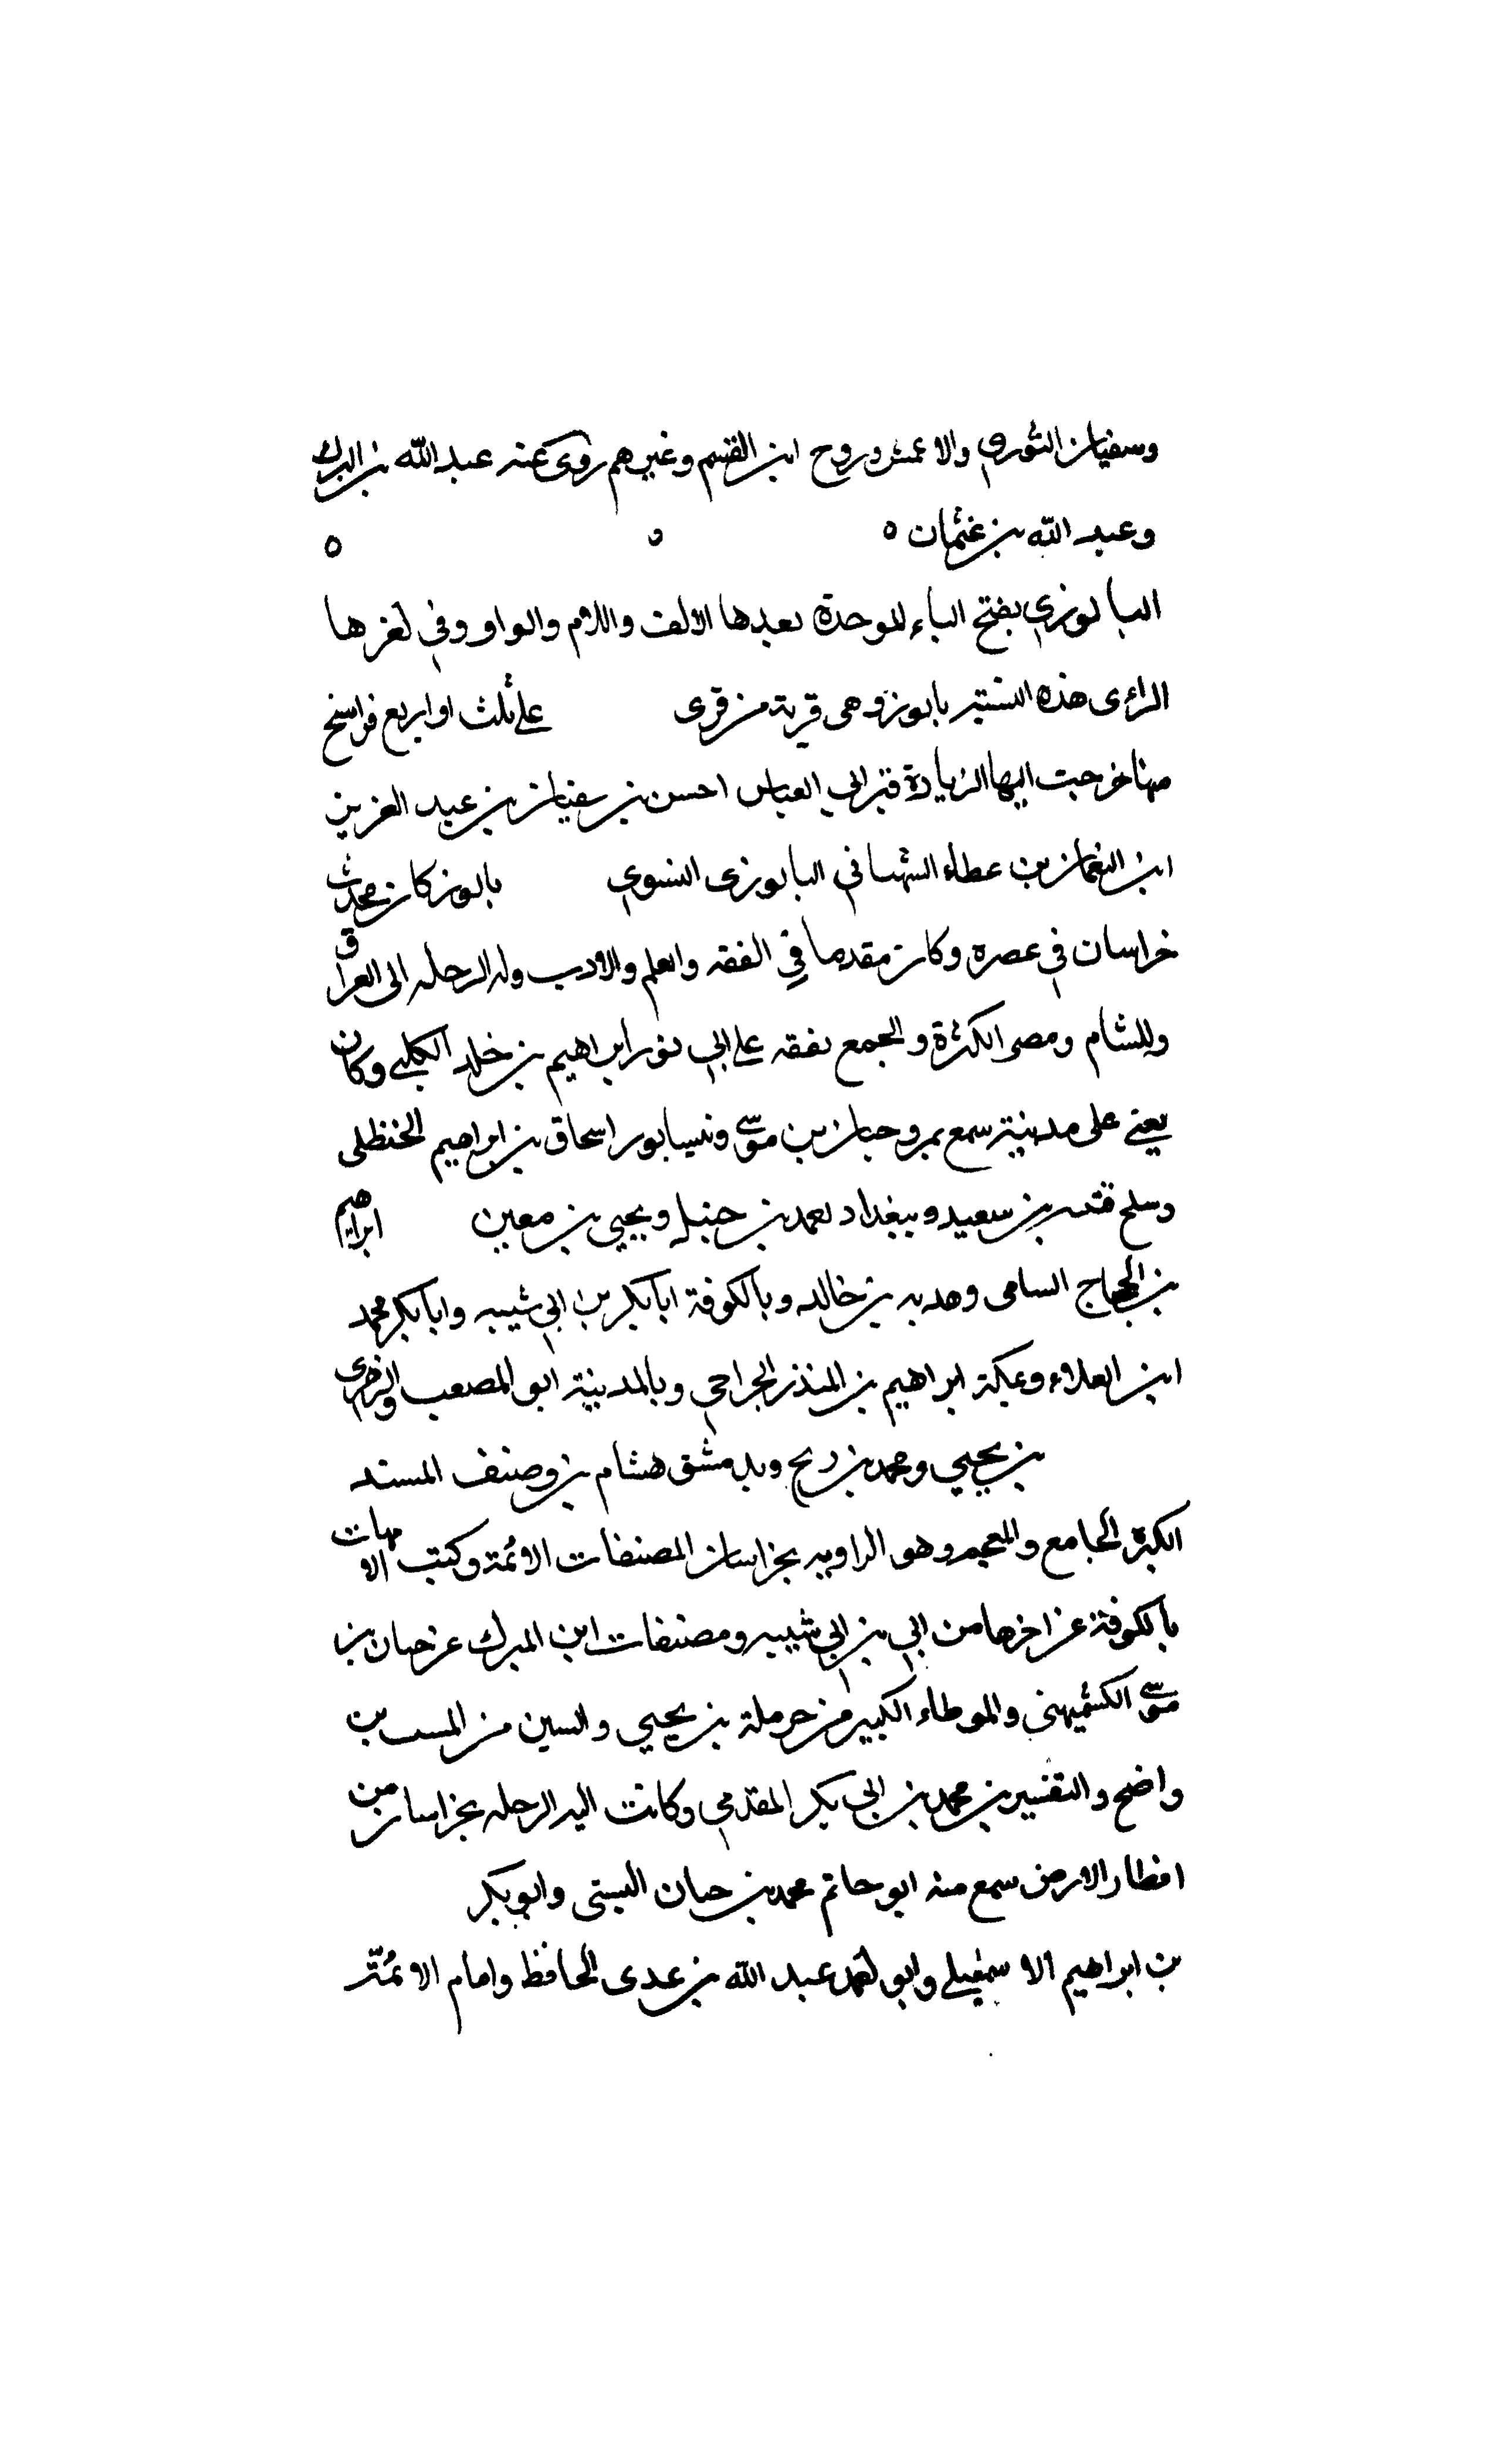 وسفيان الثوري والاعمش وروح ابن القسم وغيرهم روى عنه عبد الله بن المبرك
وعبد الله بن عثمان ه ه ه
البالوزي بفتح الباء الموحدة بعدها الالف واللام والواو وفي اخرها
الزاءى هذه النسبة بالوز وهى قرية من قرى على ثلث او اربع فراسخ
منها خرجت اليها لزيارة قبر ابي العباس احسن بن سفيان بن عبد العزيز
ابن النعمان بن عطاء الشيبانى البالوزى النسوي بالوز كان محدث
خراسان في عصره وكان مقدما في الفقه والعلم والادب وله الرحله الى العراق
وللشام ومصر الكثرة والجمع تفقه على ابي ثور ابراهيم بن خلد الكلبي وكان
يعني على مدينة سمع بمرو حبان بن موسى ونيسابور اسحاق بن ابراهيم الحنظلى
وسلح قتيبه بن سعيد وببغداد احمد بن حنبل ويحيي بن معين ابراهيم
بن الحجاج السامى وهدبه بن خالد وبالكوفة ابا بكر بن ابي شيبه وابا بكر محمد
ابن العلاء وبمكة ابراهيم بن المنذر الجراحي وبالمدينة ابو المصعب الزهرى و
بن يحيي ومحمد بن رمح وبدمشق هشام بن وصنف المسند
الكبرة الجامع والمعجم وهو الراويه بخراسان المصنفات الائمة وكتب الامهات
بالكوفة عن اخرها من ابي بن ابي شيبه ومصنفات ابن المبرك عن حبان بن
موسى الكشميهنى والموطاء الكبير من حرملة بن يحيي والسين من المسب بن
واضح والتفسير بن محمد بن ابي بكر المقدمي وكانت اليه الرحله بخراسان من
اقطار الارض سمع منه ابو حاتم محمد بن حبان البستى وابو بكر
بن ابراهيم الاسمعيلي وابو احمد عبد الله بن عدى الحافظ وامام الائمة